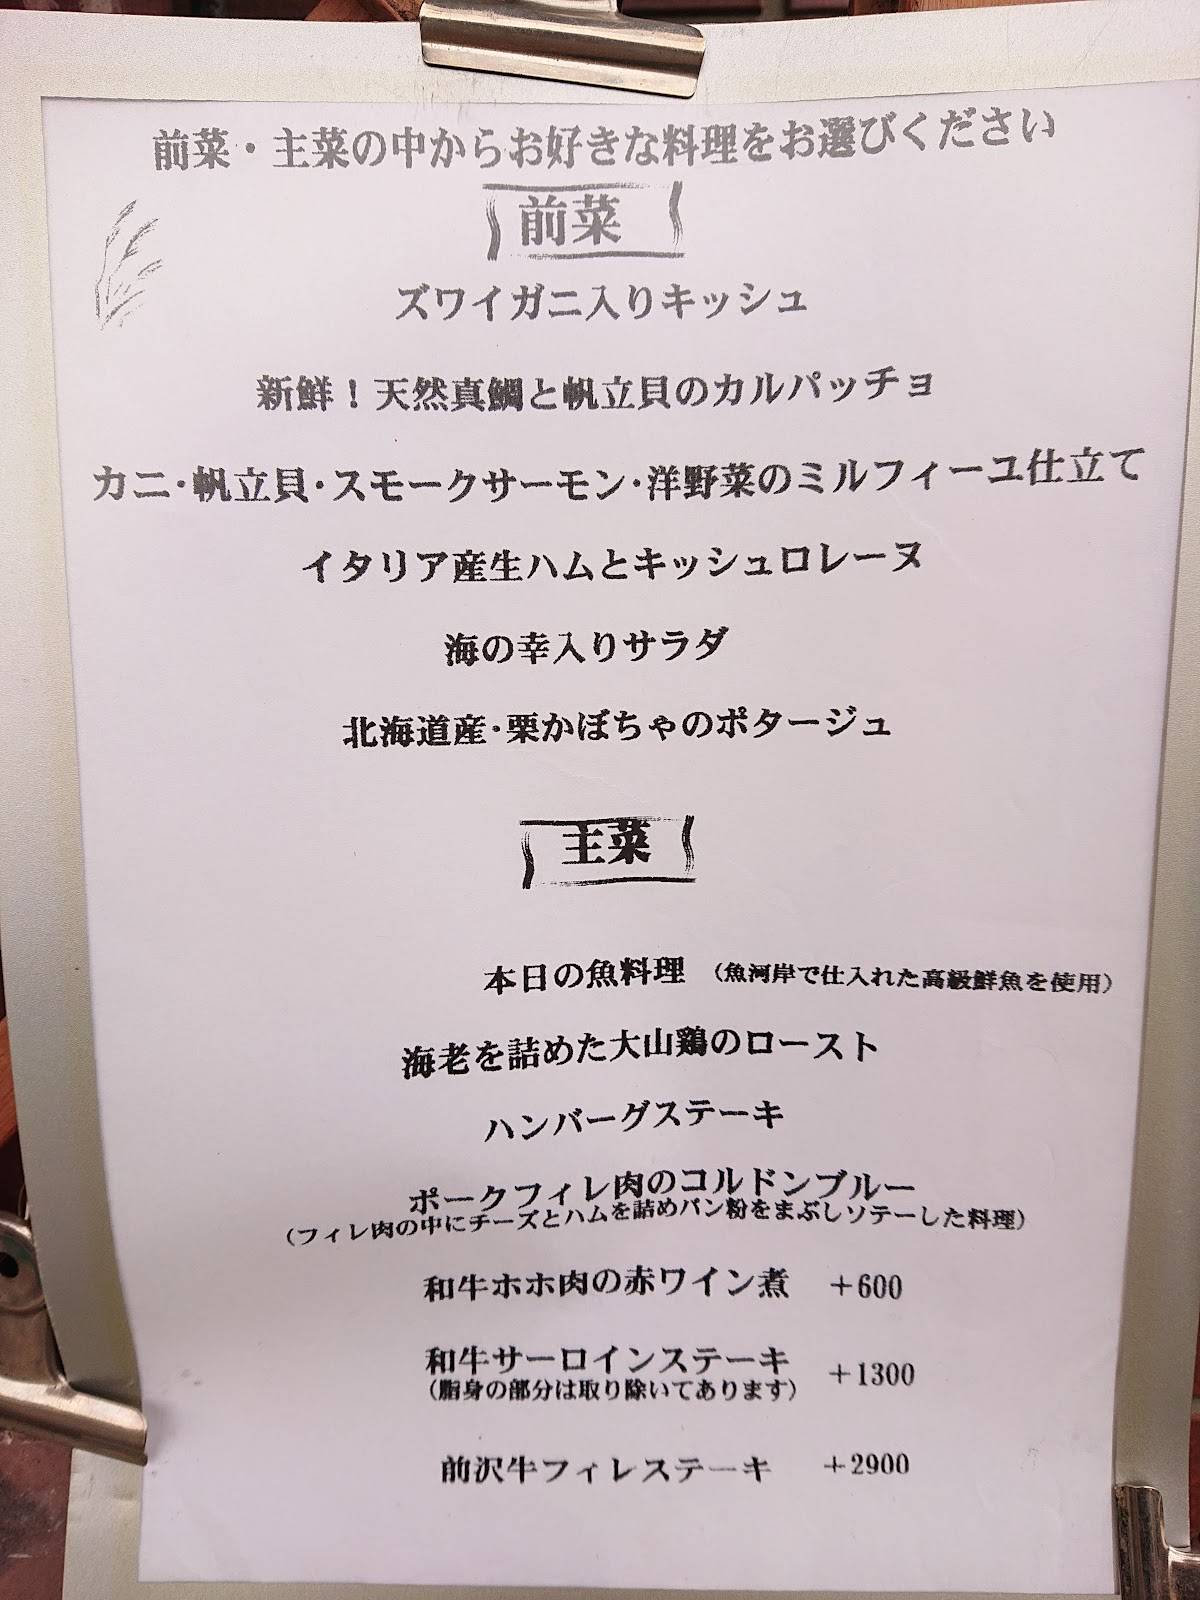 前菜・主菜の中からお好きな料理をお選びください
前菜
ズワイガニ入りキッシュ
新鮮！天然真鯛と帆立貝のカルパッチョ
カニ・帆立貝・スモークサーモン・洋野菜のミルフィーユ仕立て
イタリア産生ハムとキッシュロレーヌ
海の幸入りサラダ
北海道産・栗かぼちゃのポタージュ
主菜
本日の魚料理 （魚河岸で仕入れた高級鮮魚を使用）
海老を詰めた大山鶏のロースト
ハンバーグステーキ
ポークフィレ肉のコルドンブルー
（フィレ肉の中にチーズとハムを詰めパン粉をまぶしソテーした料理）
和牛ホホ肉の赤ワイン煮 +600
和牛サーロインステーキ +1300
（脂身の部分は取り除いてあります）
前沢牛フィレステーキ +2900